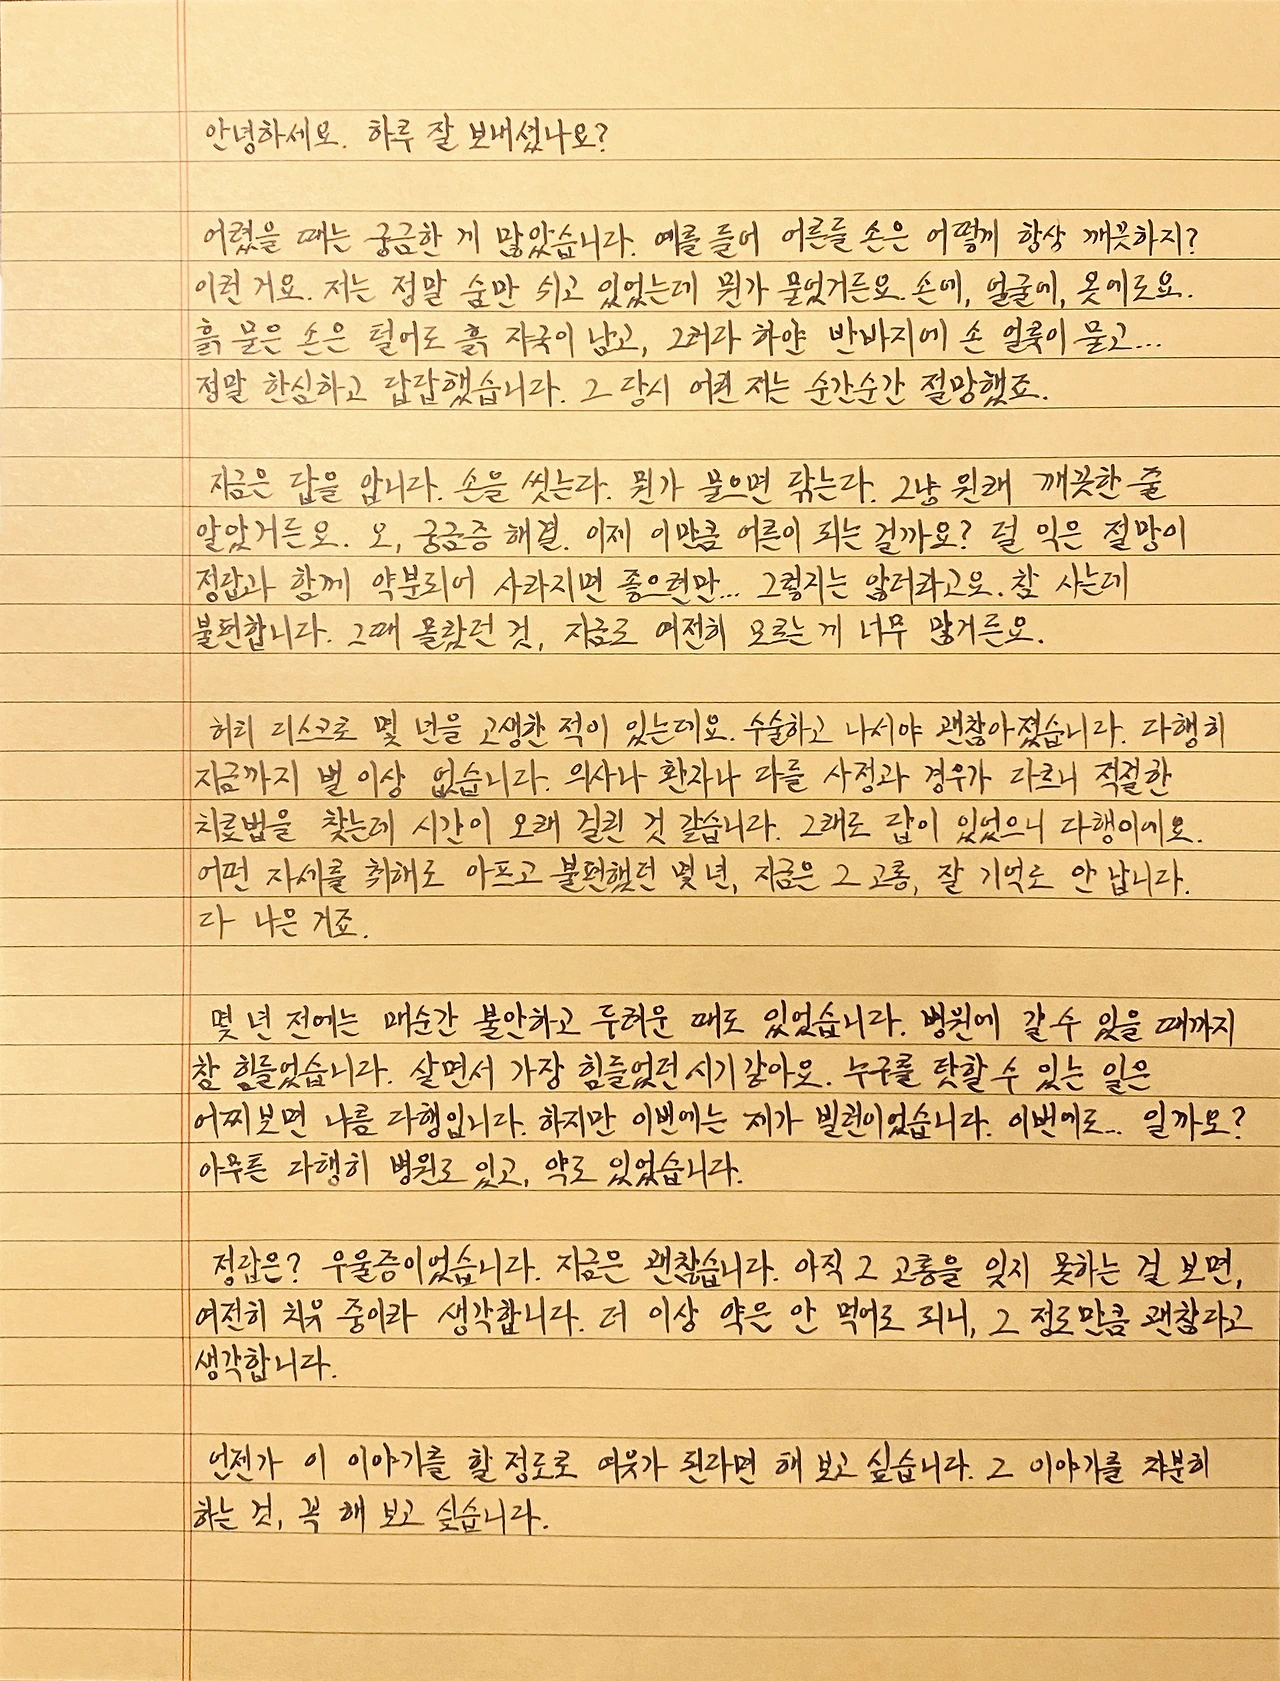 안녕하세요. 하루 잘 보내셨나요?
어렸을 때는 궁금한 게 많았습니다. 예를 들어 어른들 손은 어떻게 항상 깨끗하지?
이런 거요. 저는 정말 숨만 쉬고 있었는데 뭔가 묻었거든요. 손에, 얼굴에, 옷에도요.
흙 묻은 손은 털어도 흙 자국이 남고, 그러다 하얀 반바지에 손 얼룩이 묻고...
정말 한심하고 답답했습니다. 그 당시 어린 저는 순간순간 절망했죠.
지금은 답을 압니다. 손을 씻는다. 뭔가 묻으면 닦는다. 그냥 원래 깨끗한 줄
알았거든요. 오, 궁금증 해결. 이제 이만큼 어른이 되는 걸까요? 덜 익은 절망이
정답과 함께 약분되어 사라지면 좋으련만... 그렇지는 않더라고요. 참 사는데
불편합니다. 그때 몰랐던 것, 지금도 여전히 모르는 게 너무 많거든요.
허리 디스크로 몇 년을 고생한 적이 있는데요. 수술하고 나서야 괜찮아졌습니다. 다행히
지금까지 별 이상 없습니다. 의사나 환자나 다들 사정과 경우가 다르니 적절한
치료법을 찾는데 시간이 오래 걸린 것 같습니다. 그래도 답이 있었으니 다행이에요.
어떤 자세를 취해도 아프고 불편했던 몇 년, 지금은 그 고통, 잘 기억도 안 납니다.
다 나은 거죠.
몇 년 전에는 매순간 불안하고 두려운 때도 있었습니다. 병원에 갈 수 있을 때까지
참 힘들었습니다. 살면서 가장 힘들었던 시기 같아요. 누구를 탓할 수 있는 일은
어찌 보면 나름 다행입니다. 하지만 이번에는 제가 빌런이었습니다. 이번에도... 일까요?
아무튼 다행히 병원도 있고, 약도 있었습니다.
정답은? 우울증이었습니다. 지금은 괜찮습니다. 아직 그 고통을 잊지 못하는 걸 보면,
여전히 치유 중이라 생각합니다. 더 이상 약은 안 먹어도 되니, 그 정도만큼 괜찮다고
생각합니다.
언젠가 이 이야기를 할 정도로 여유가 된다면 해 보고 싶습니다. 그 이야기를 차분히
하는 것, 꼭 해 보고 싶습니다.